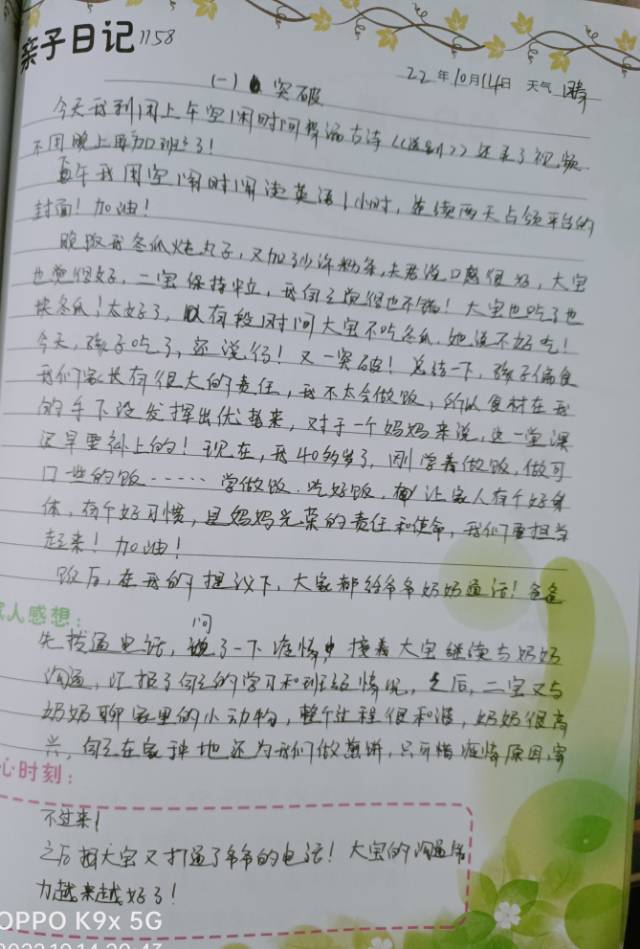 亲子日记 1158
22年10月14日 天气 晴
(一) 突破
今天我利用上午空闲时间背诵古诗《送别》还录了视频
不用晚上再加班了!
下午我用空闲时间读英语1小时,连续两天占领平台的
封面!加油!
晚饭我冬瓜炖丸子,又加了少许粉条,夫君说口感很好,大宝
也觉得好,二宝保持中立,我自己觉得也不错!大宝也吃了几
块冬瓜!太好了,以前有段时间大宝不吃冬瓜,她说不好吃!
今天,孩子吃了,还说行!又一突破!总结一下,孩子偏食
我们家长有很大的责任,我不太会做饭,所以食材在我
的手下没发挥出优势来,对于一个妈妈来说,这一堂课
迟早要补上的!现在,我40多岁了,刚学着做饭,做可
口一些的饭……学做饭,吃好饭,让家人有个好身
体,有个好习惯,是妈妈光荣的责任和使命,我们要担当
起来!加油!
饭后,在我的提议下,大家都给爷爷奶奶通话!爸爸
家人感想:
先拨通电话,问了一下疫情,接着大宝继续与奶奶
沟通,汇报了自己的学习和班级情况,之后,二宝又与
奶奶聊家里的小动物,整个过程很和谐,奶奶很高
兴,自己在家种地还为我们做煎饼,只可惜疫情原因,寄
心时刻:
不过来!
之后大宝又打通了爷爷的电话!大宝的沟通能
力越来越好了!
OPPO K9x 5G
2022.10.14 20:43